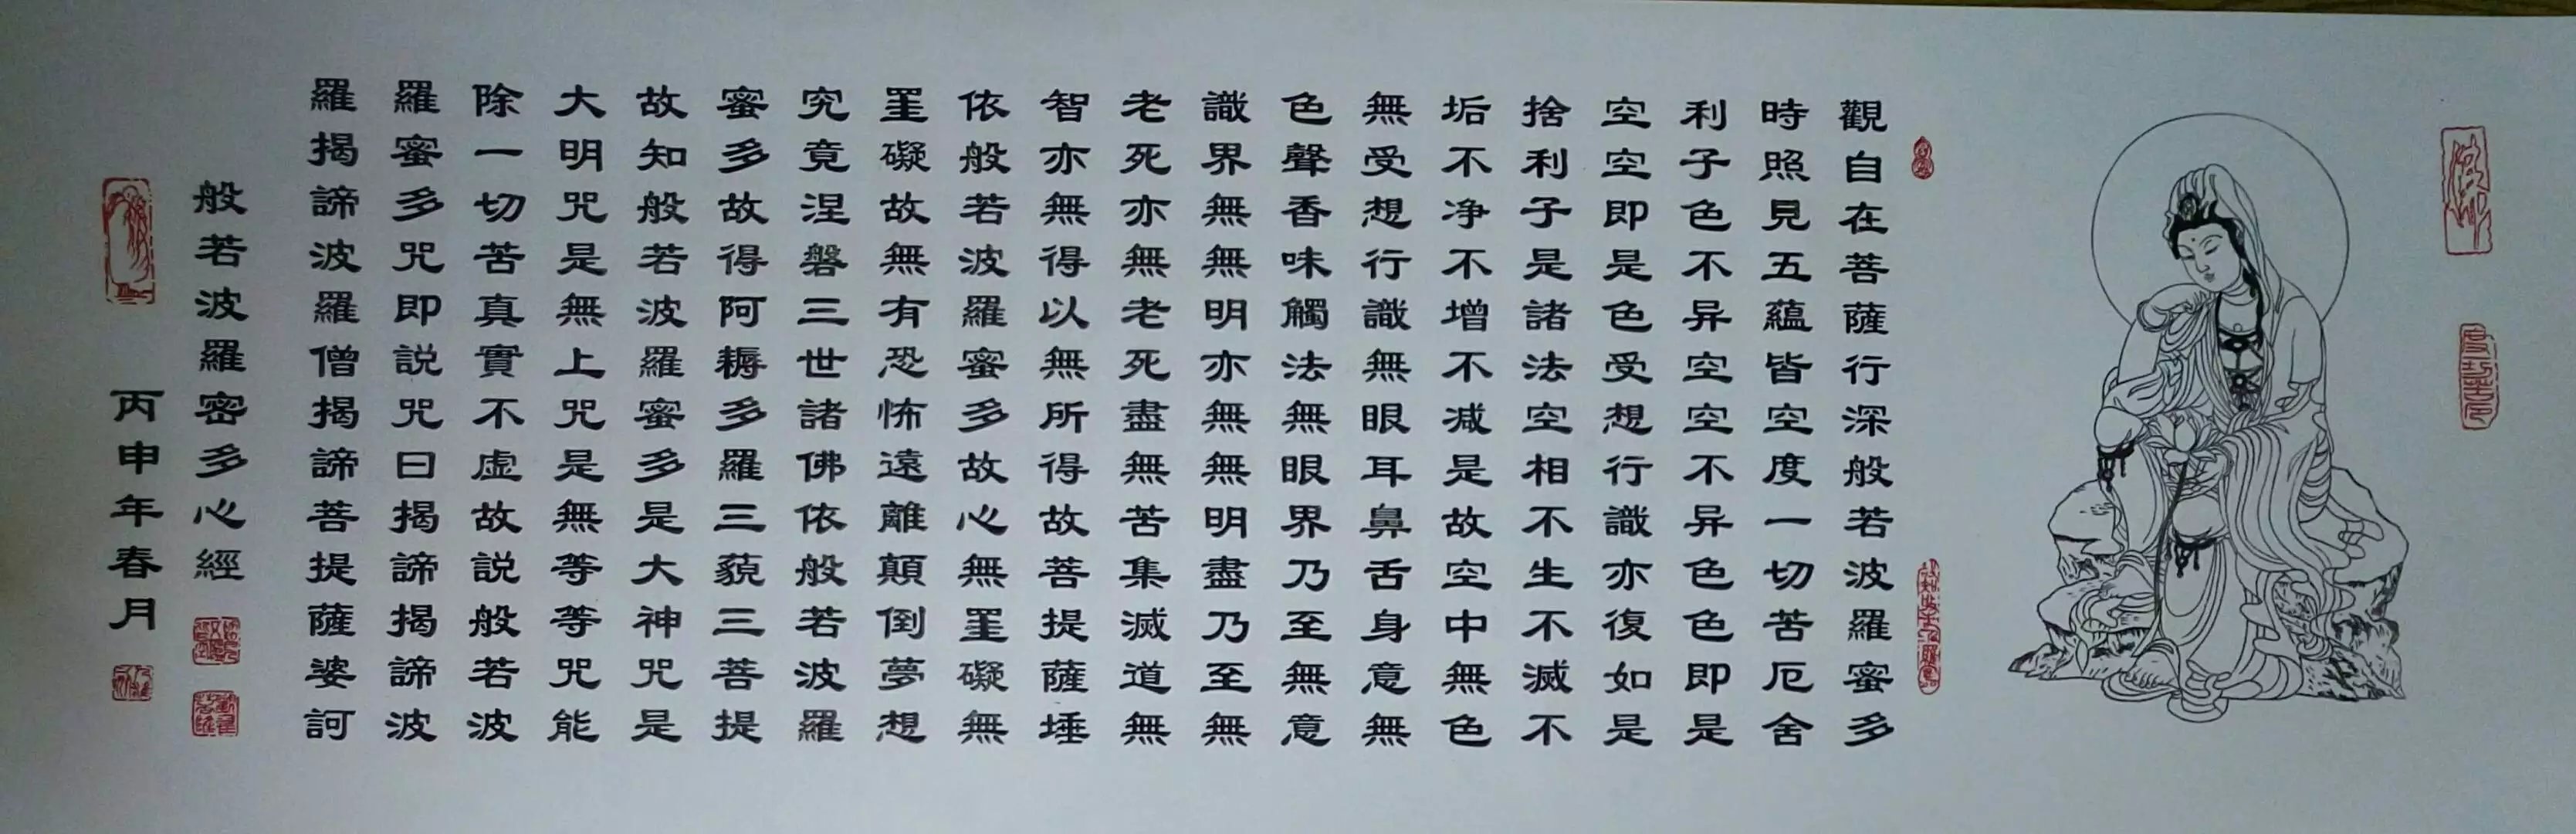 觀自在菩薩行深般若波羅蜜多
時照見五蘊皆空度一切苦厄舍
利子色不异空空不异色色即是
空空即是色受想行識亦復如是
捨利子是諸法空相不生不滅不
垢不净不增不减是故空中無色
無受想行識無眼耳鼻舌身意無
色聲香味觸法無眼界乃至無意
識界無無明亦無無明盡乃至無
老死亦無老死盡無苦集滅道無
智亦無得以無所得故菩提薩埵
依般若波羅蜜多故心無罣礙無
罣礙故無有恐怖遠離顛倒夢想
究竟涅磐三世諸佛依般若波羅
蜜多故得阿耨多羅三藐三菩提
故知般若波羅蜜多是大神咒是
大明咒是無上咒是無等等咒能
除一切苦真實不虛故説般若波
羅蜜多咒即説咒曰揭諦揭諦波
羅揭諦波羅僧揭諦菩提薩婆訶
般若波羅密多心經
丙申年春月